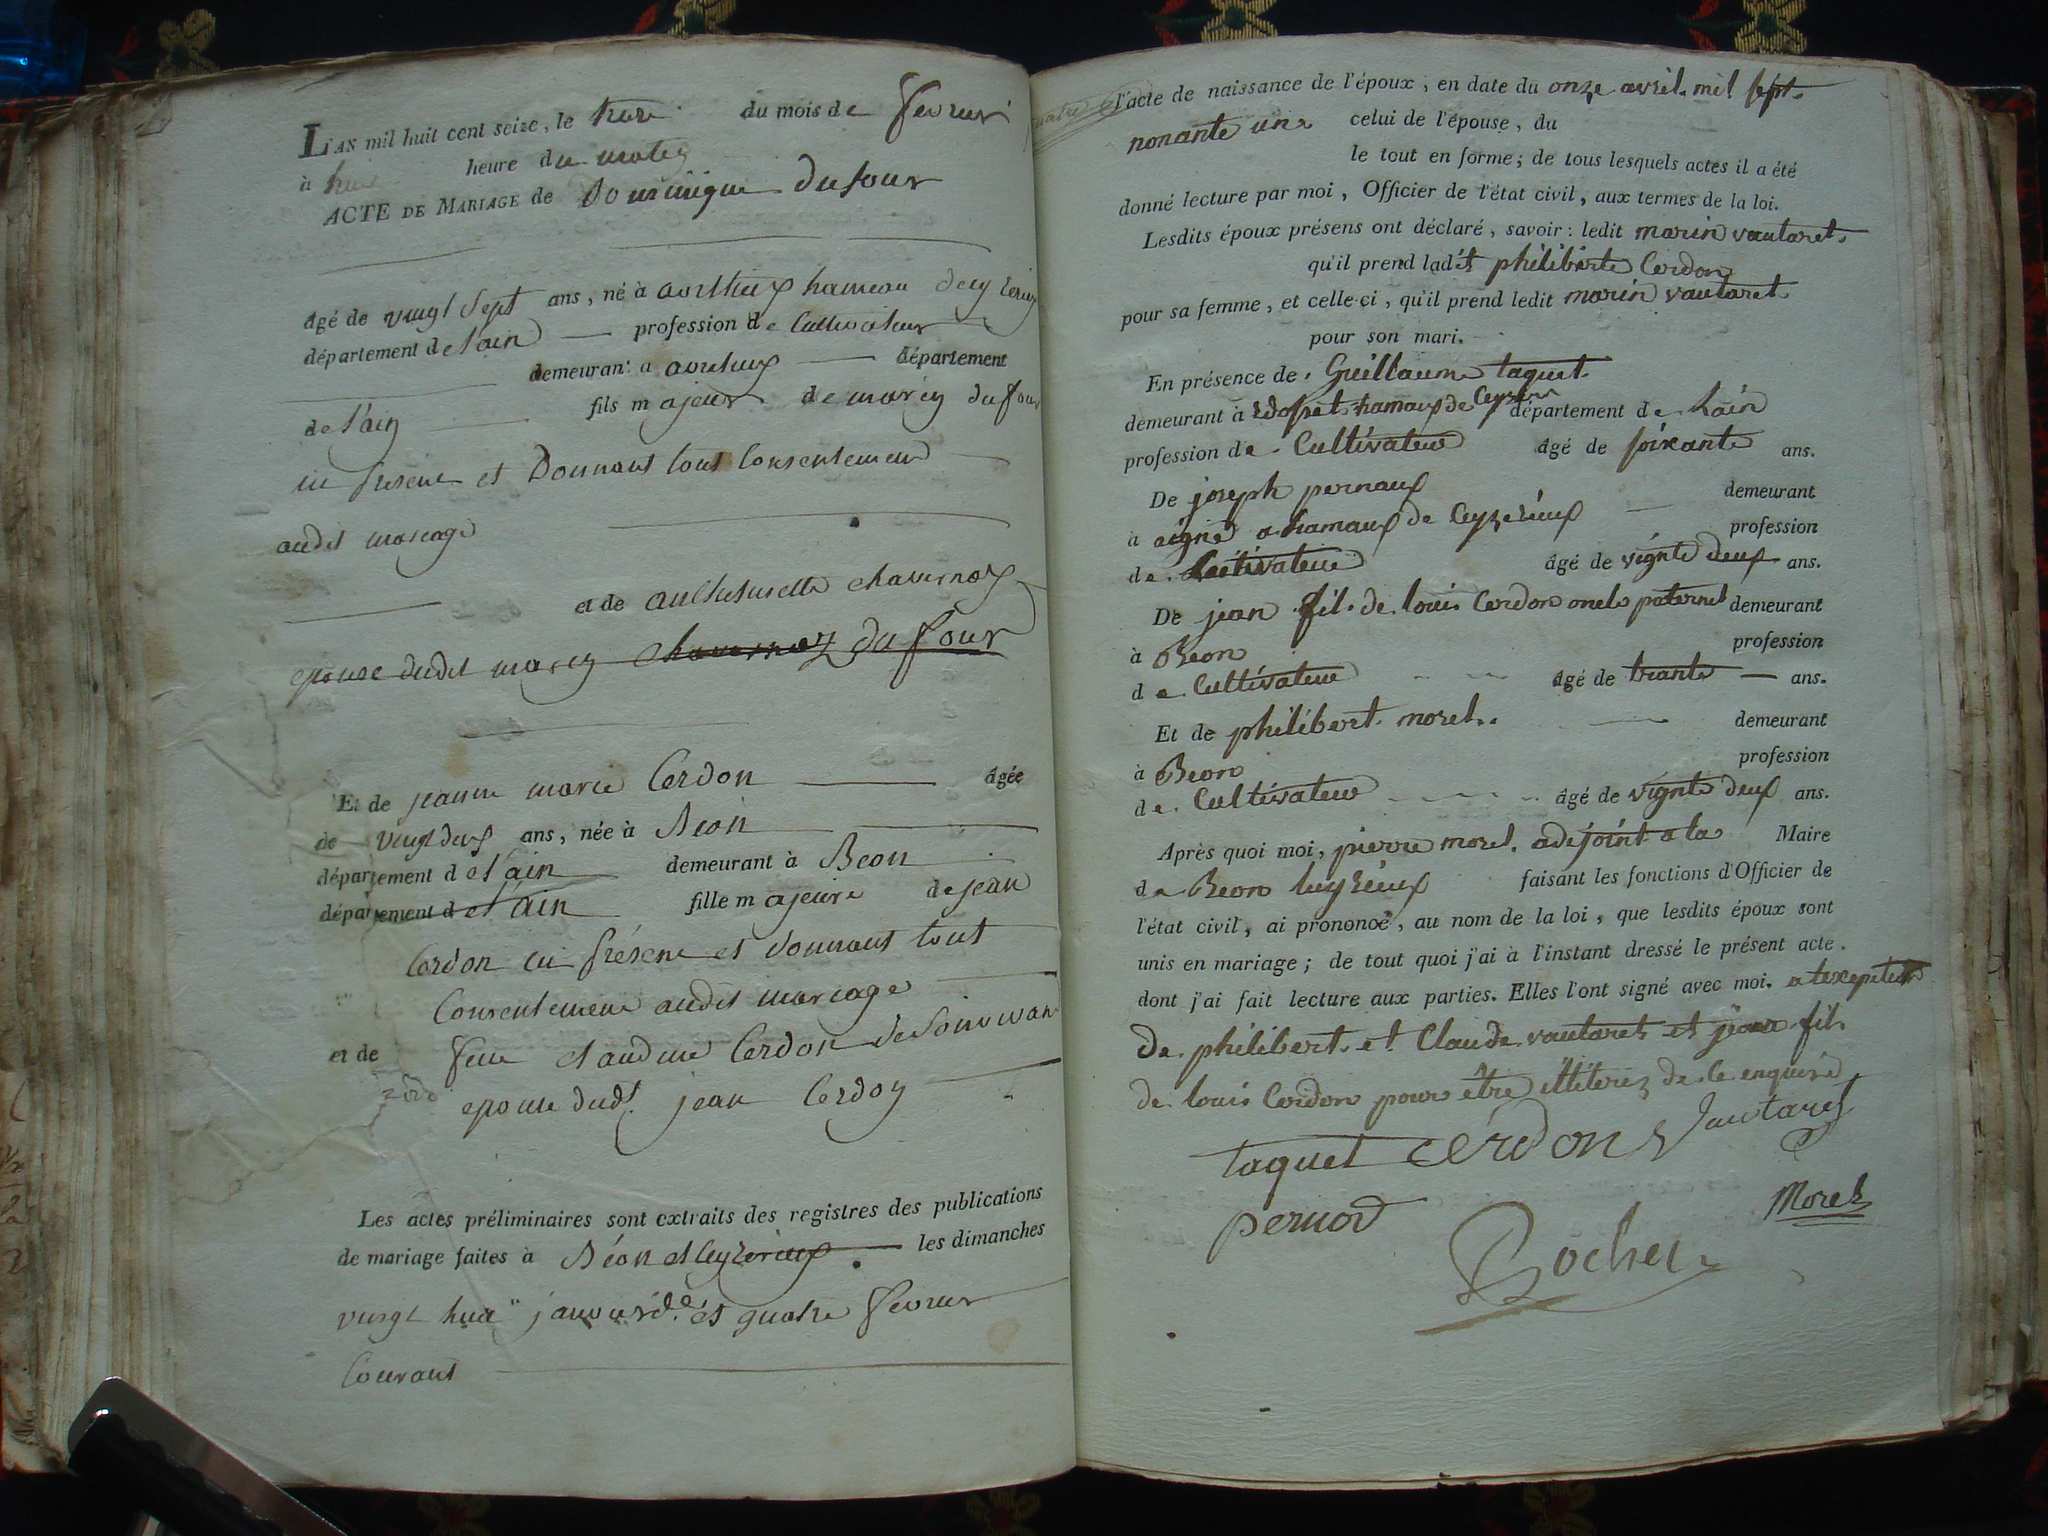 L'AN mil huit cent seize, le du mois de fevrier
à heure du matin
ACTE DE MARIAGE de Dominique Dufour
âgé de vingt sept ans, né à hameau de
département de l'ain profession de Cultivateur
demeurant a département
de l'ain fils majeur de marin dufour
ici present et Donnant tout Consentement
audit mariage
et de chavernoz
epouse dudit marin chavernoz du four
Et de jeanne marie Cerdon âgée
de vingt deux ans, née à Béon
département de l'ain demeurant à Beon
département de l'ain fille majeure de jean
Cerdon ici présent et donnant tout
Consentement audit mariage
et de feue claudine Cerdon de son vivant
epouse dudt. jean Cerdon
Les actes préliminaires sont extraits des registres des publications
de mariage faites à Béon et Ceyzerieux les dimanches
vingt huit janvier et quatre fevrier
Courant
l'acte de naissance de l'époux, en date du onze avril mil sept
nonante une celui de l'épouse, du
le tout en forme; de tous lesquels actes il a été
donné lecture par moi, Officier de l'état civil, aux termes de la loi.
Lesdits époux présens ont déclaré, savoir: ledit marin vautaret
qu'il prend ladét philiberte Cerdon
pour sa femme, et celle-ci, qu'il prend ledit marin vautaret
pour son mari.
En présence de Guillaume taquet
demeurant à hamaux de département de lain
profession de Cultivateur âgé de soixante ans.
De joseph pernaux demeurant
à aigne a hamaux de Ceyzerieux profession
de Cultivateur âgé de vignte deux ans.
De jean fil de louis Cerdon oncle paternel demeurant
à Beon profession
de Cultivateur âgé de trante ans.
Et de philibert morel demeurant
à Beon profession
de Cultivateur âgé de vignte deux ans.
Après quoi moi, pierre morel adejoint a la Maire
de Beon luyrieux faisant les fonctions d'Officier de
l'état civil, ai prononcé, au nom de la loi, que lesdits époux sont
unis en mariage; de tout quoi j'ai à l'instant dressé le présent acte.
dont j'ai fait lecture aux parties. Elles l'ont signé avec moi.
de philibert et Claude vautaret et jean fil
de louis Cerdon pour être illiterez de ce enquéré
taquet cérdon Vautaret
pernod Morel
Rocher